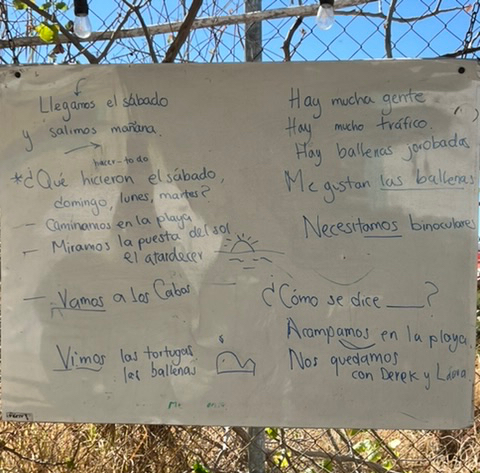 Llegamos el sábado
y salimos mañana.
hacer - to do
*¿Qué hicieron el sábado,
domingo, lunes, martes?
— Caminamos en la playa
— Miramos la puesta del sol
el atardecer
— Vamos a los Cabos
Vimos las tortugas
las ballenas
Hay mucha gente
Hay mucho tráfico.
Hay ballenas jorobadas
Me gustan las ballenas
Necesitamos binoculares
¿Cómo se dice ____?
Acampamos en la playa
Nos quedamos
con Derek y Laura